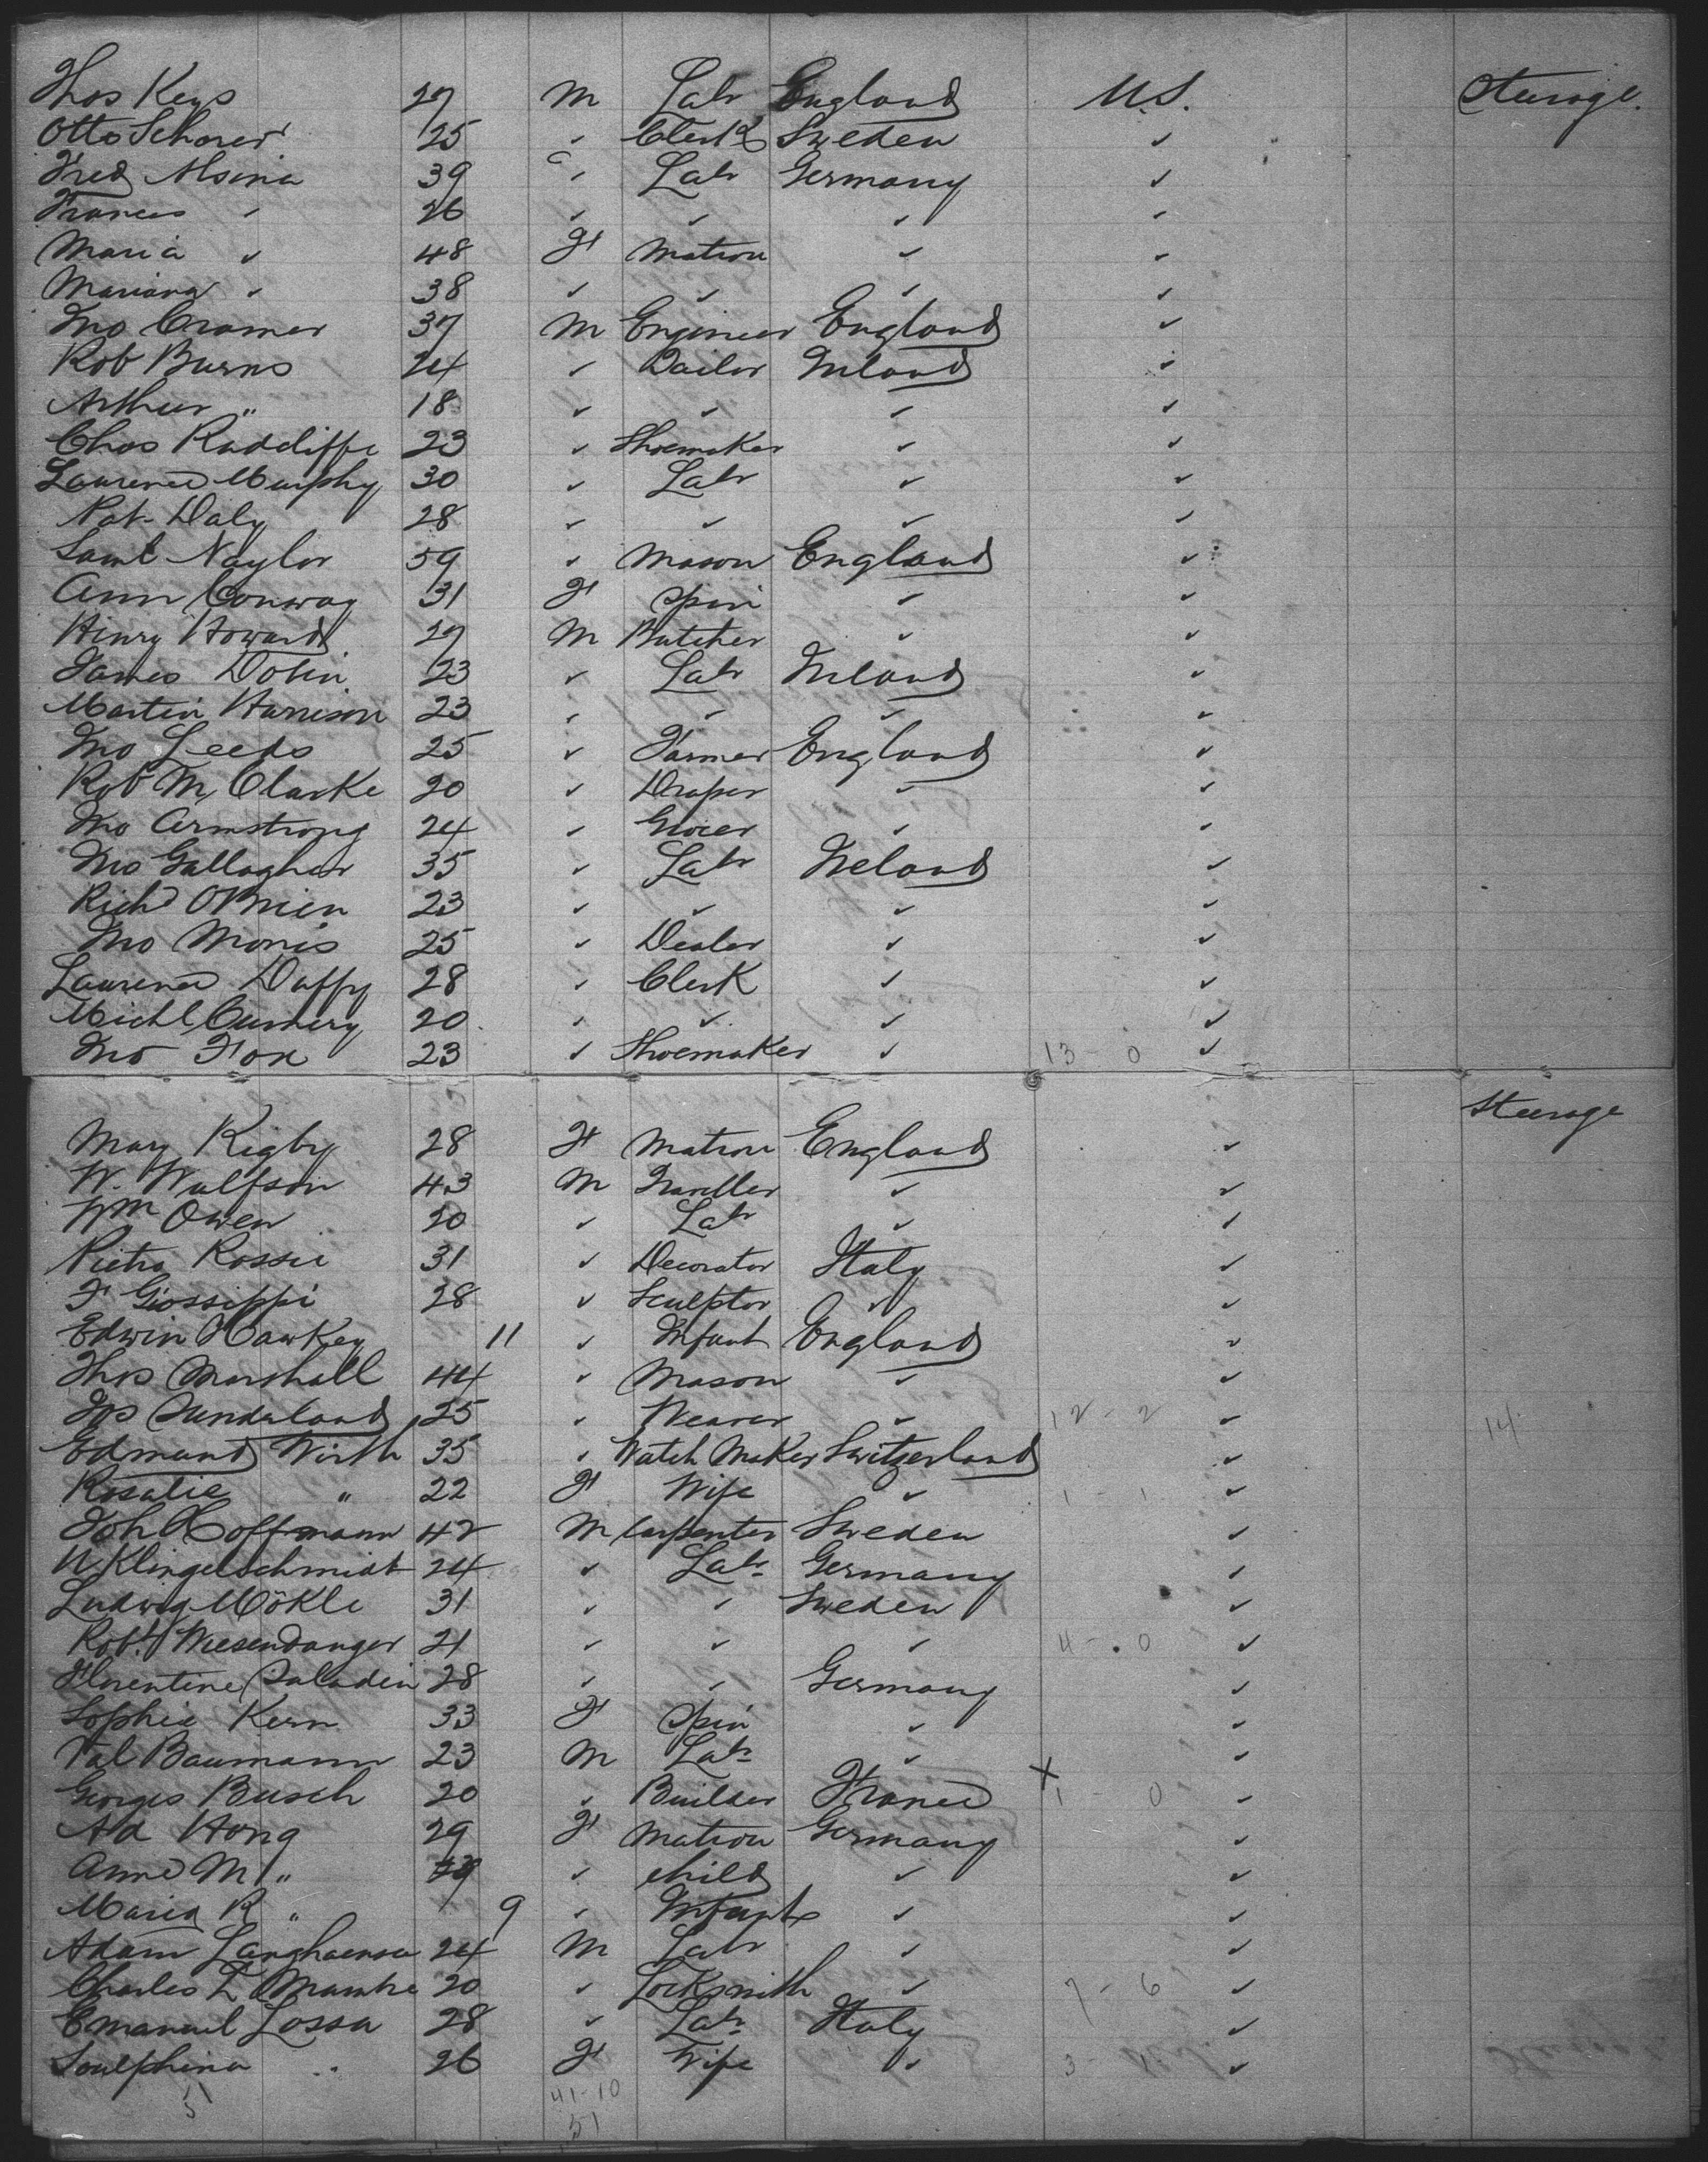 Thos Keys 27 M Labr England U.S. Steerage.
Otto Schorer 25 " Clerk Sweden "
Fred Alsina 39 " Labr Germany "
Frances " 26 " " " "
Maria " 48 F Matron " "
Mariana " 38 " " " "
Jno Cramer 37 M Engineer England "
Rob Burns 24 " Sailor Ireland "
Arthur " 18 " " " "
Chas Radcliffe 23 " Shoemaker " "
Laurence Murphy 30 " Labr " "
Pat Daly 28 " " " "
Saml Naylor 59 " Mason England "
Ann Conway 31 F Spin " "
Henry Howard 27 M Butcher " "
James Dolin 23 " Labr Ireland "
Martin Harrison 23 " " " "
Jno Leeds 25 " Farmer England "
Rob M Clarke 20 " Draper " "
Jno Armstrong 24 " Grocer " "
Jno Gallagher 35 " Labr Ireland "
Richd OBrien 23 " " " "
Jno Morris 25 " Dealer " "
Laurence Duffy 28 " Clerk " "
Michl 20 " " " "
Jno Fox 23 " Shoemaker " 13 - 0 "
Steerage
Mary Rigby 28 F Matron England "
W. Wulfson 43 M Traveller " "
Wm Owen 20 " Labr " "
Pietro Rossie 31 " Decorator Italy "
F Giossippi 28 " Sculptor " "
Edwin Hawkey 11 " Infant England "
Thos Marshall 44 " Mason " "
Jos Sunderland 25 " Weaver " 12 - 2 " 14
Edmund Wirth 35 " Watch Maker Switzerland "
Rosalie " 22 F Wife " 1 - 1 "
Joh Hoffmann 42 M Carpenter Sweden "
N Klingelschmidt 24 " Labr Germany "
Ludwig Mökle 31 " " Sweden "
Robt Wiesendanger 21 " " " 4 - 0 "
Florentine Saladin 28 " " Germany "
Sophie Kern 33 F Spin " "
Val Baumann 23 M Labr " "
Georges Busch 20 " Builder France X 1 - 0 "
Ad Hong 29 F Matron Germany "
Anne M " " Child " "
Maria R " 9 " Infant " "
Adam 24 M Labr " "
Charles L 20 " Locksmith " 7 - 6 "
Emanuel Lossa 28 " Labr Italy "
Soulphina " 26 F Wife " 3 - 1 "
51 41-10
51